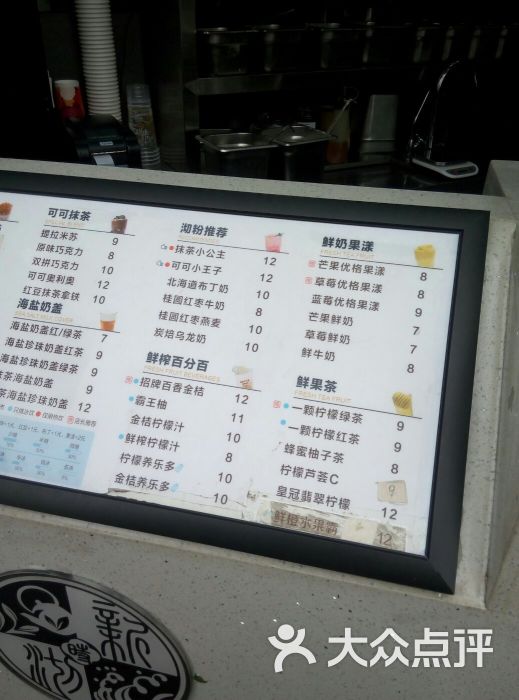 可可抹茶
提拉米苏 9
原味巧克力 8
双拼巧克力 10
可可奥利奥 10
红豆抹茶拿铁 10
海盐奶盖
海盐奶盖红/绿茶 7
海盐珍珠奶盖红茶 9
海盐珍珠奶盖绿茶 9
抹茶海盐奶盖 9
抹茶海盐珍珠奶盖 12
沏粉推荐
抹茶小公主 12
可可小王子 12
北海道布丁奶 10
桂圆红枣牛奶 8
桂圆红枣燕麦 10
炭焙乌龙奶 10
鲜榨百分百
FRESH FRUIT BEVERAGES
招牌百香金桔 12
霸王柚 11
金桔柠檬汁 10
鲜榨柠檬汁 8
柠檬养乐多 10
金桔养乐多 10
鲜奶果漾
FRESH TEA FRUIT
芒果优格果漾 8
草莓优格果漾 8
蓝莓优格果漾 8
芒果鲜奶 8
草莓鲜奶 8
鲜牛奶 8
鲜果茶
FRESH TEA FRUIT
一颗柠檬绿茶 9
一颗柠檬红茶 9
蜂蜜柚子茶 8
柠檬芦荟C 9
皇冠翡翠柠檬 12
鲜橙水果霸 12
大众点评